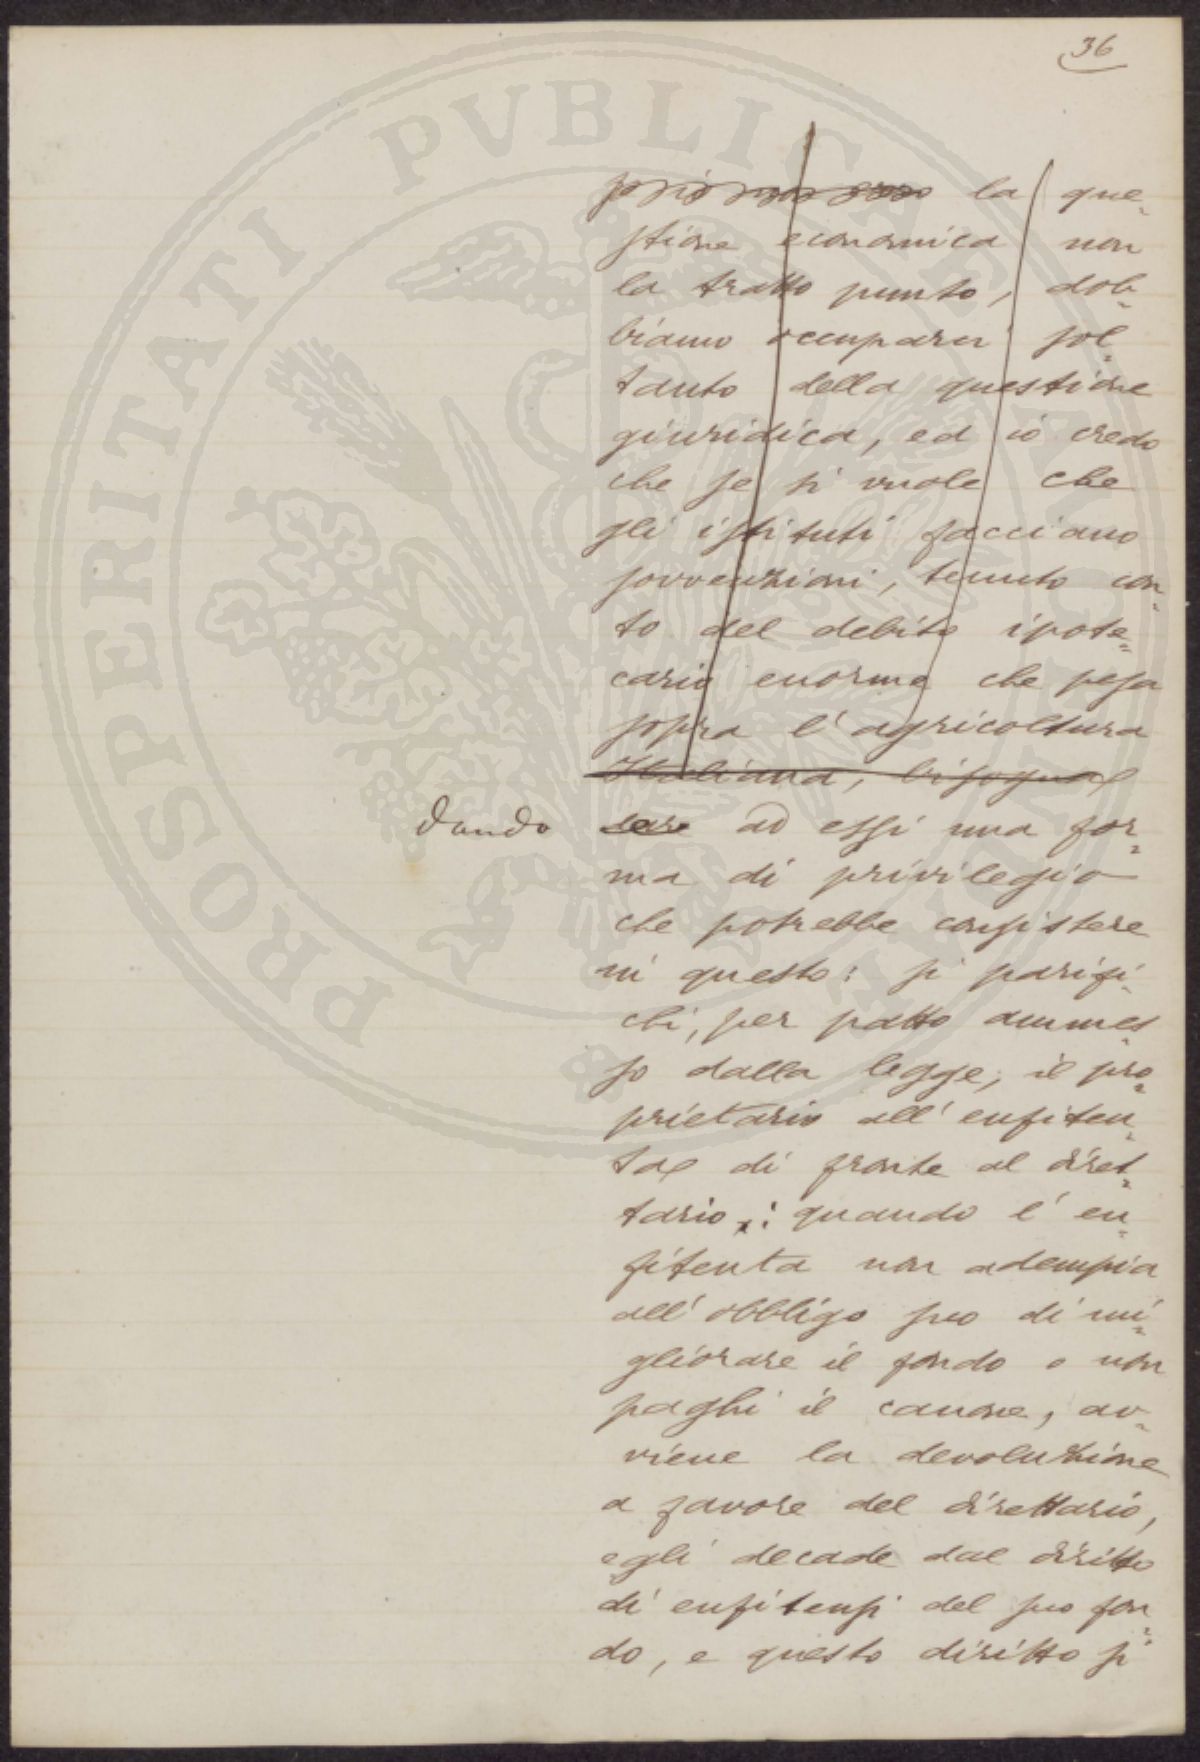 36
la que=
stione economica non
la tratto punto, dob=
biamo occuparci sol=
tanto della questione
giuridica, ed io credo
che se si vuole che
gli istituti facciano
sovvenzioni, tenuto con=
to del debito ipote=
cario enorme che pesa
sopra l'agricoltura
Italiana, bisogna
dando dare ad essi una for=
ma di privilegio
che potrebbe consistere
in questo: si parifi=
chi, per patto ammes=
so dalla legge, il pro=
prietario all'enfiteu=
ta di fronte al diret=
tario: quando l'en=
fiteuta non adempia
all'obbligo suo di mi=
gliorare il fondo o non
paghi il canone, av=
viene la devoluzione
a favore del direttario,
egli decade dal diritto
di enfiteusi del suo fon=
do, e questo diritto si
PROSPERITATI PVBLICAE